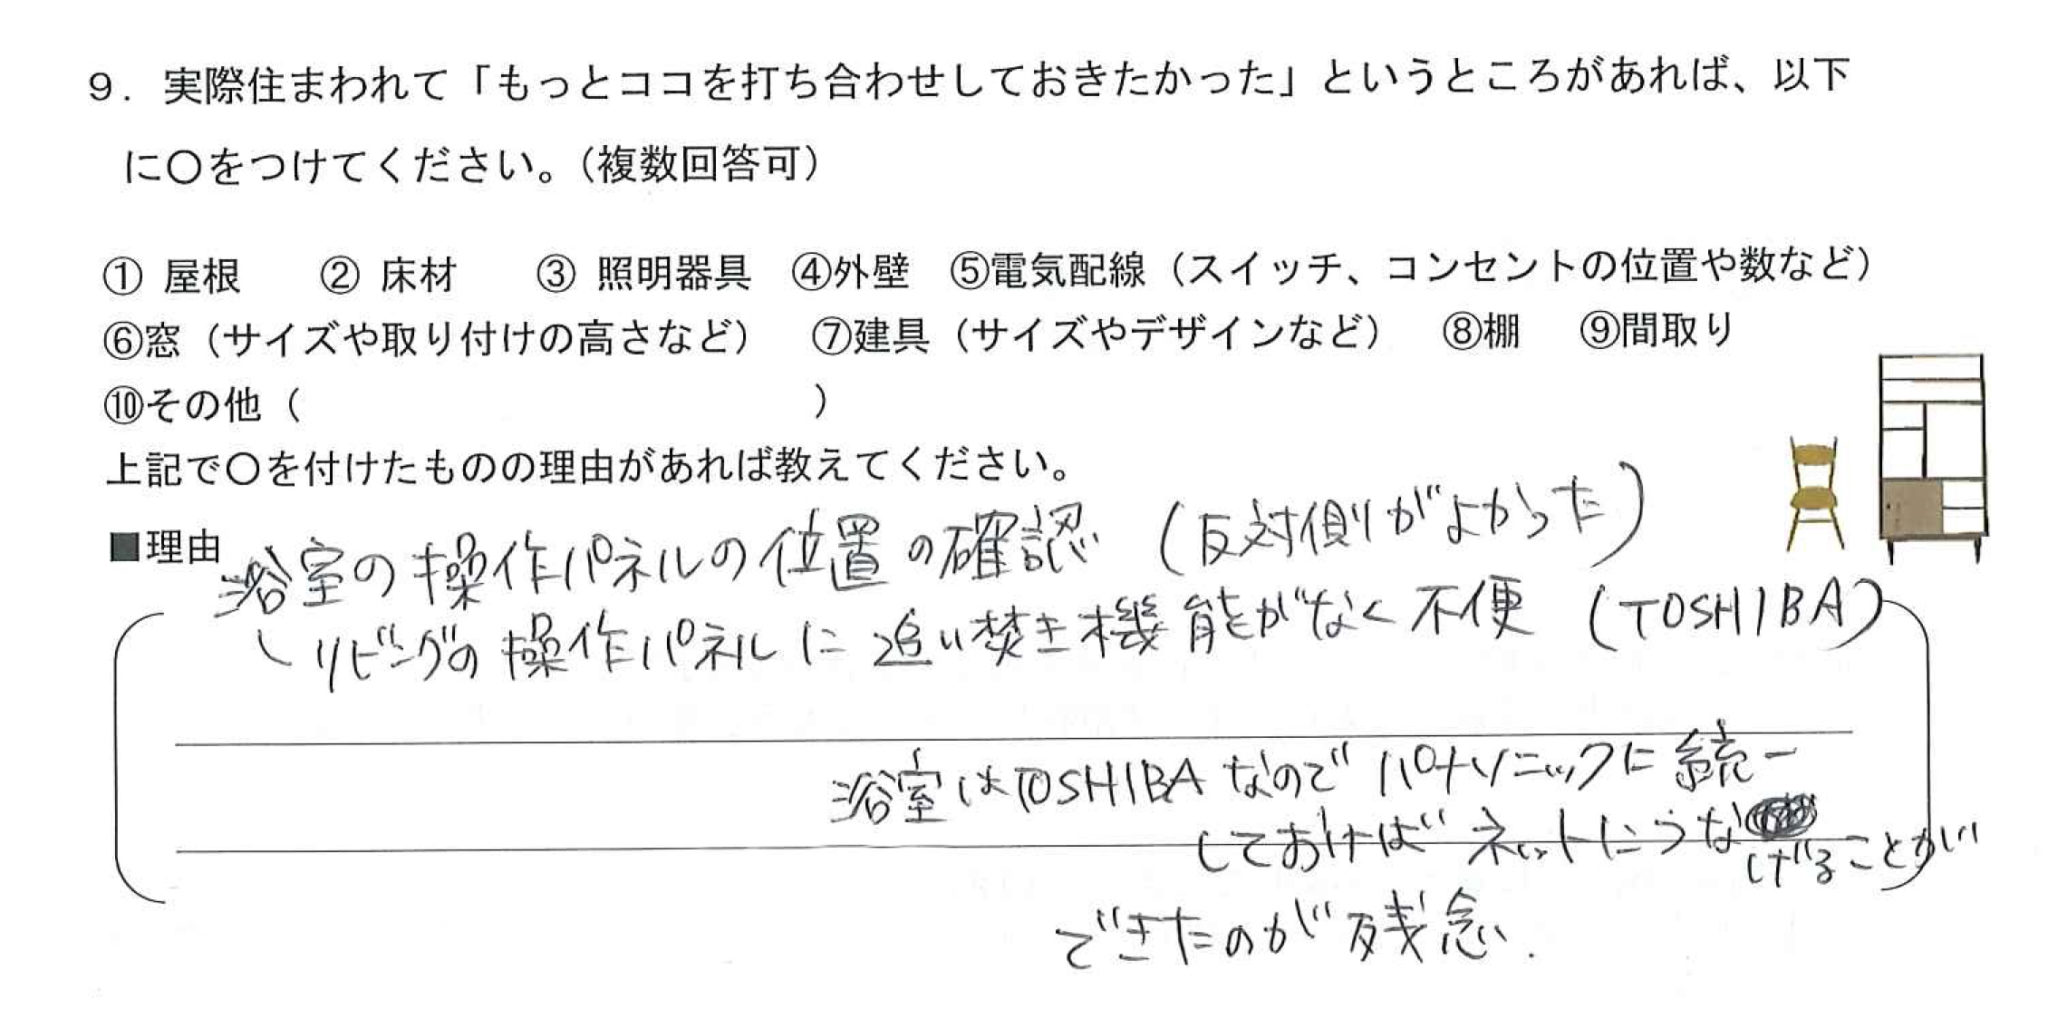 9．実際住まわれて「もっとココを打ち合わせしておきたかった」というところがあれば、以下
に〇をつけてください。（複数回答可）
① 屋根　② 床材　③ 照明器具　④外壁　⑤電気配線（スイッチ、コンセントの位置や数など）
⑥窓（サイズや取り付けの高さなど）　⑦建具（サイズやデザインなど）　⑧棚　⑨間取り
⑩その他（　　　　　　　　　　　　　）
上記で〇を付けたものの理由があれば教えてください。
■理由
浴室の操作パネルの位置の確認（反対側がよかった）
リビングの操作パネルに追い焚き機能がなく不便（TOSHIBA）
浴室はTOSHIBAなのでパナソニックに統一
しておけばネットにつなげることが
できたのが残念.